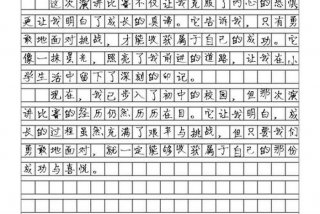 这次演讲比赛不仅让我克服了内心的恐惧，
更让我明白了成长的真谛。它告诉我，只有勇
敢地面对挑战，才能收获属于自己的成功。它
像一抹星光，照亮了我前进的道路，让我在小
学生活中留下了深刻的印记。
现在，我已步入了初中的校园，但那次演
讲比赛的经历仍然历历在目。它让我明白，成
长的过程虽然充满了艰辛与挑战，但只要我们
勇敢地面对，就一定能够收获属于自己的那份
成功与喜悦。